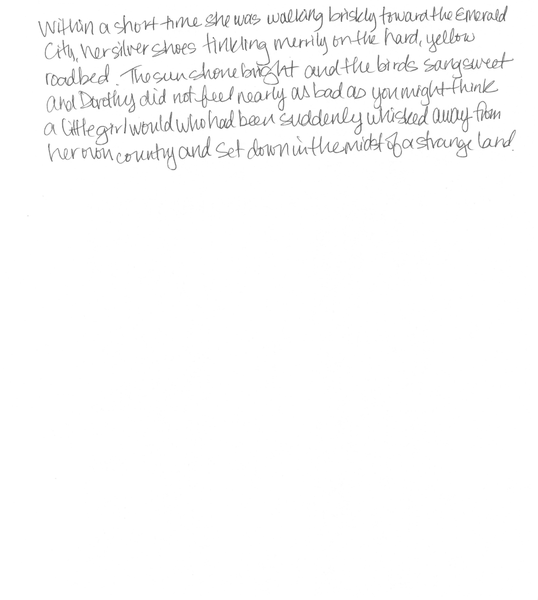 Within a short time she was walking briskly toward the Emerald
City, her silver shoes tinkling merrily on the hard, yellow
roadbed. The sun shone bright and the birds sang sweet
and Dorothy did not feel nearly as bad as you might think
a little girl would who had been suddenly whisked away from
her own country and set down in the midst of a strange land.